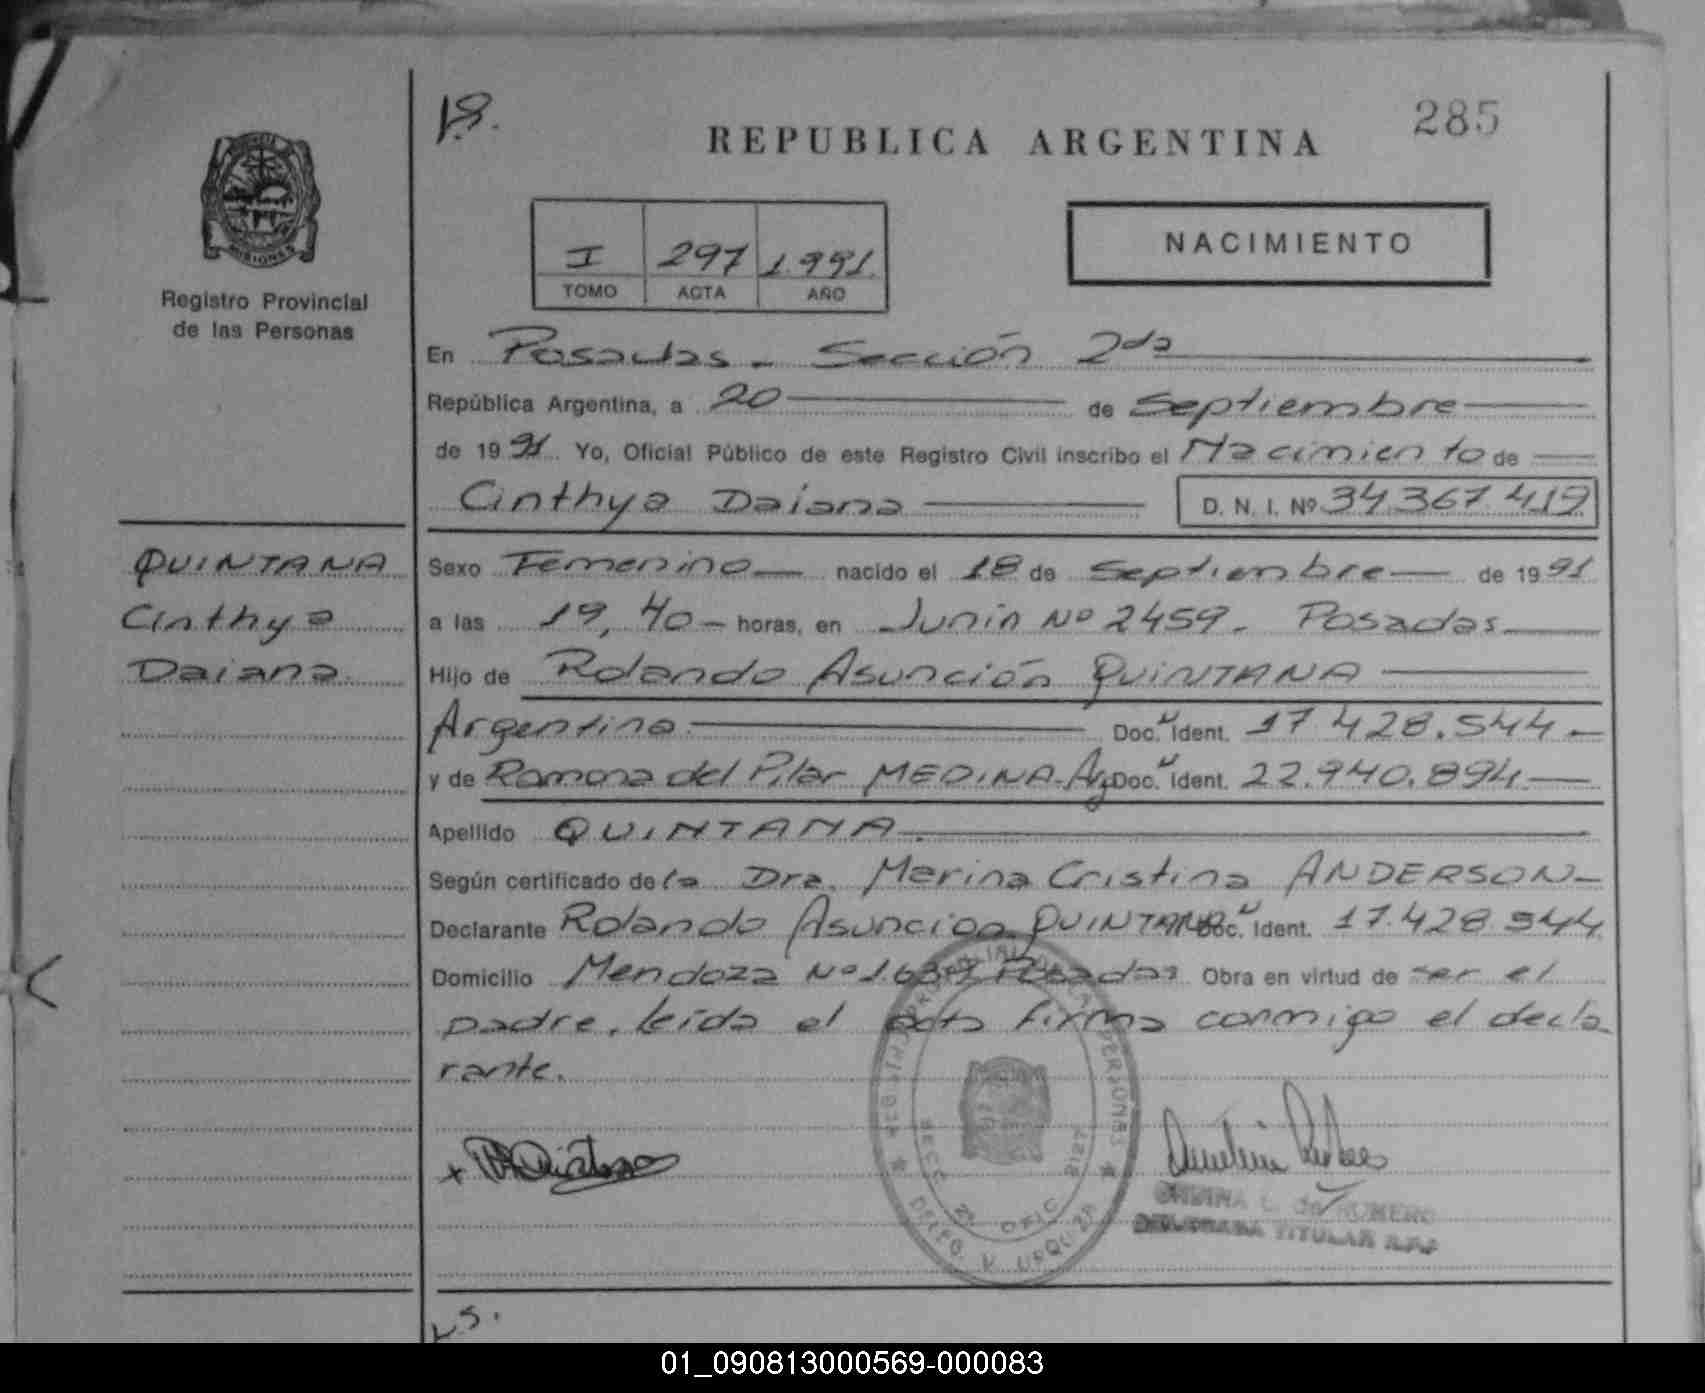 1.S.
REPUBLICA ARGENTINA
285
MISIONES
Registro Provincial
de las Personas
I 297 1.991.
TOMO ACTA AÑO
NACIMIENTO
En Posadas - Sección 2da
República Argentina, a 20 de Septiembre
de 1991. Yo, Oficial Público de este Registro Civil inscribo el Nacimiento de
Cinthya Daiana D. N. I. Nº 34.367.419
QUINTANA
Cinthya
Daiana.
Sexo Femenino nacido el 18 de Septiembre de 1991
a las 19,40 horas, en Junín Nº 2459. Posadas
Hijo de Rolando Asunción QUINTANA
Argentino. Doc. Ident. 17.428.544.-
y de Ramona del Pilar MEDINA - Arg Doc. Ident. 22.940.894.-
Apellido QUINTANA.
Según certificado de la Dra. Marina Cristina ANDERSON-
Declarante Rolando Asunción QUINTANA Doc. Ident. 17.428.544
Domicilio Mendoza Nº Posadas. Obra en virtud de ser el
padre. leída el acta firma conmigo el decla
rante.
REGISTRO PROVINCIAL DE LAS PERSONAS
SECC 2ª OFIC 2127
DELEG. V. URQUIZA
L. de ROMERO
DELEGADA TITULAR R.P.P.
L.S.
01_090813000569-000083